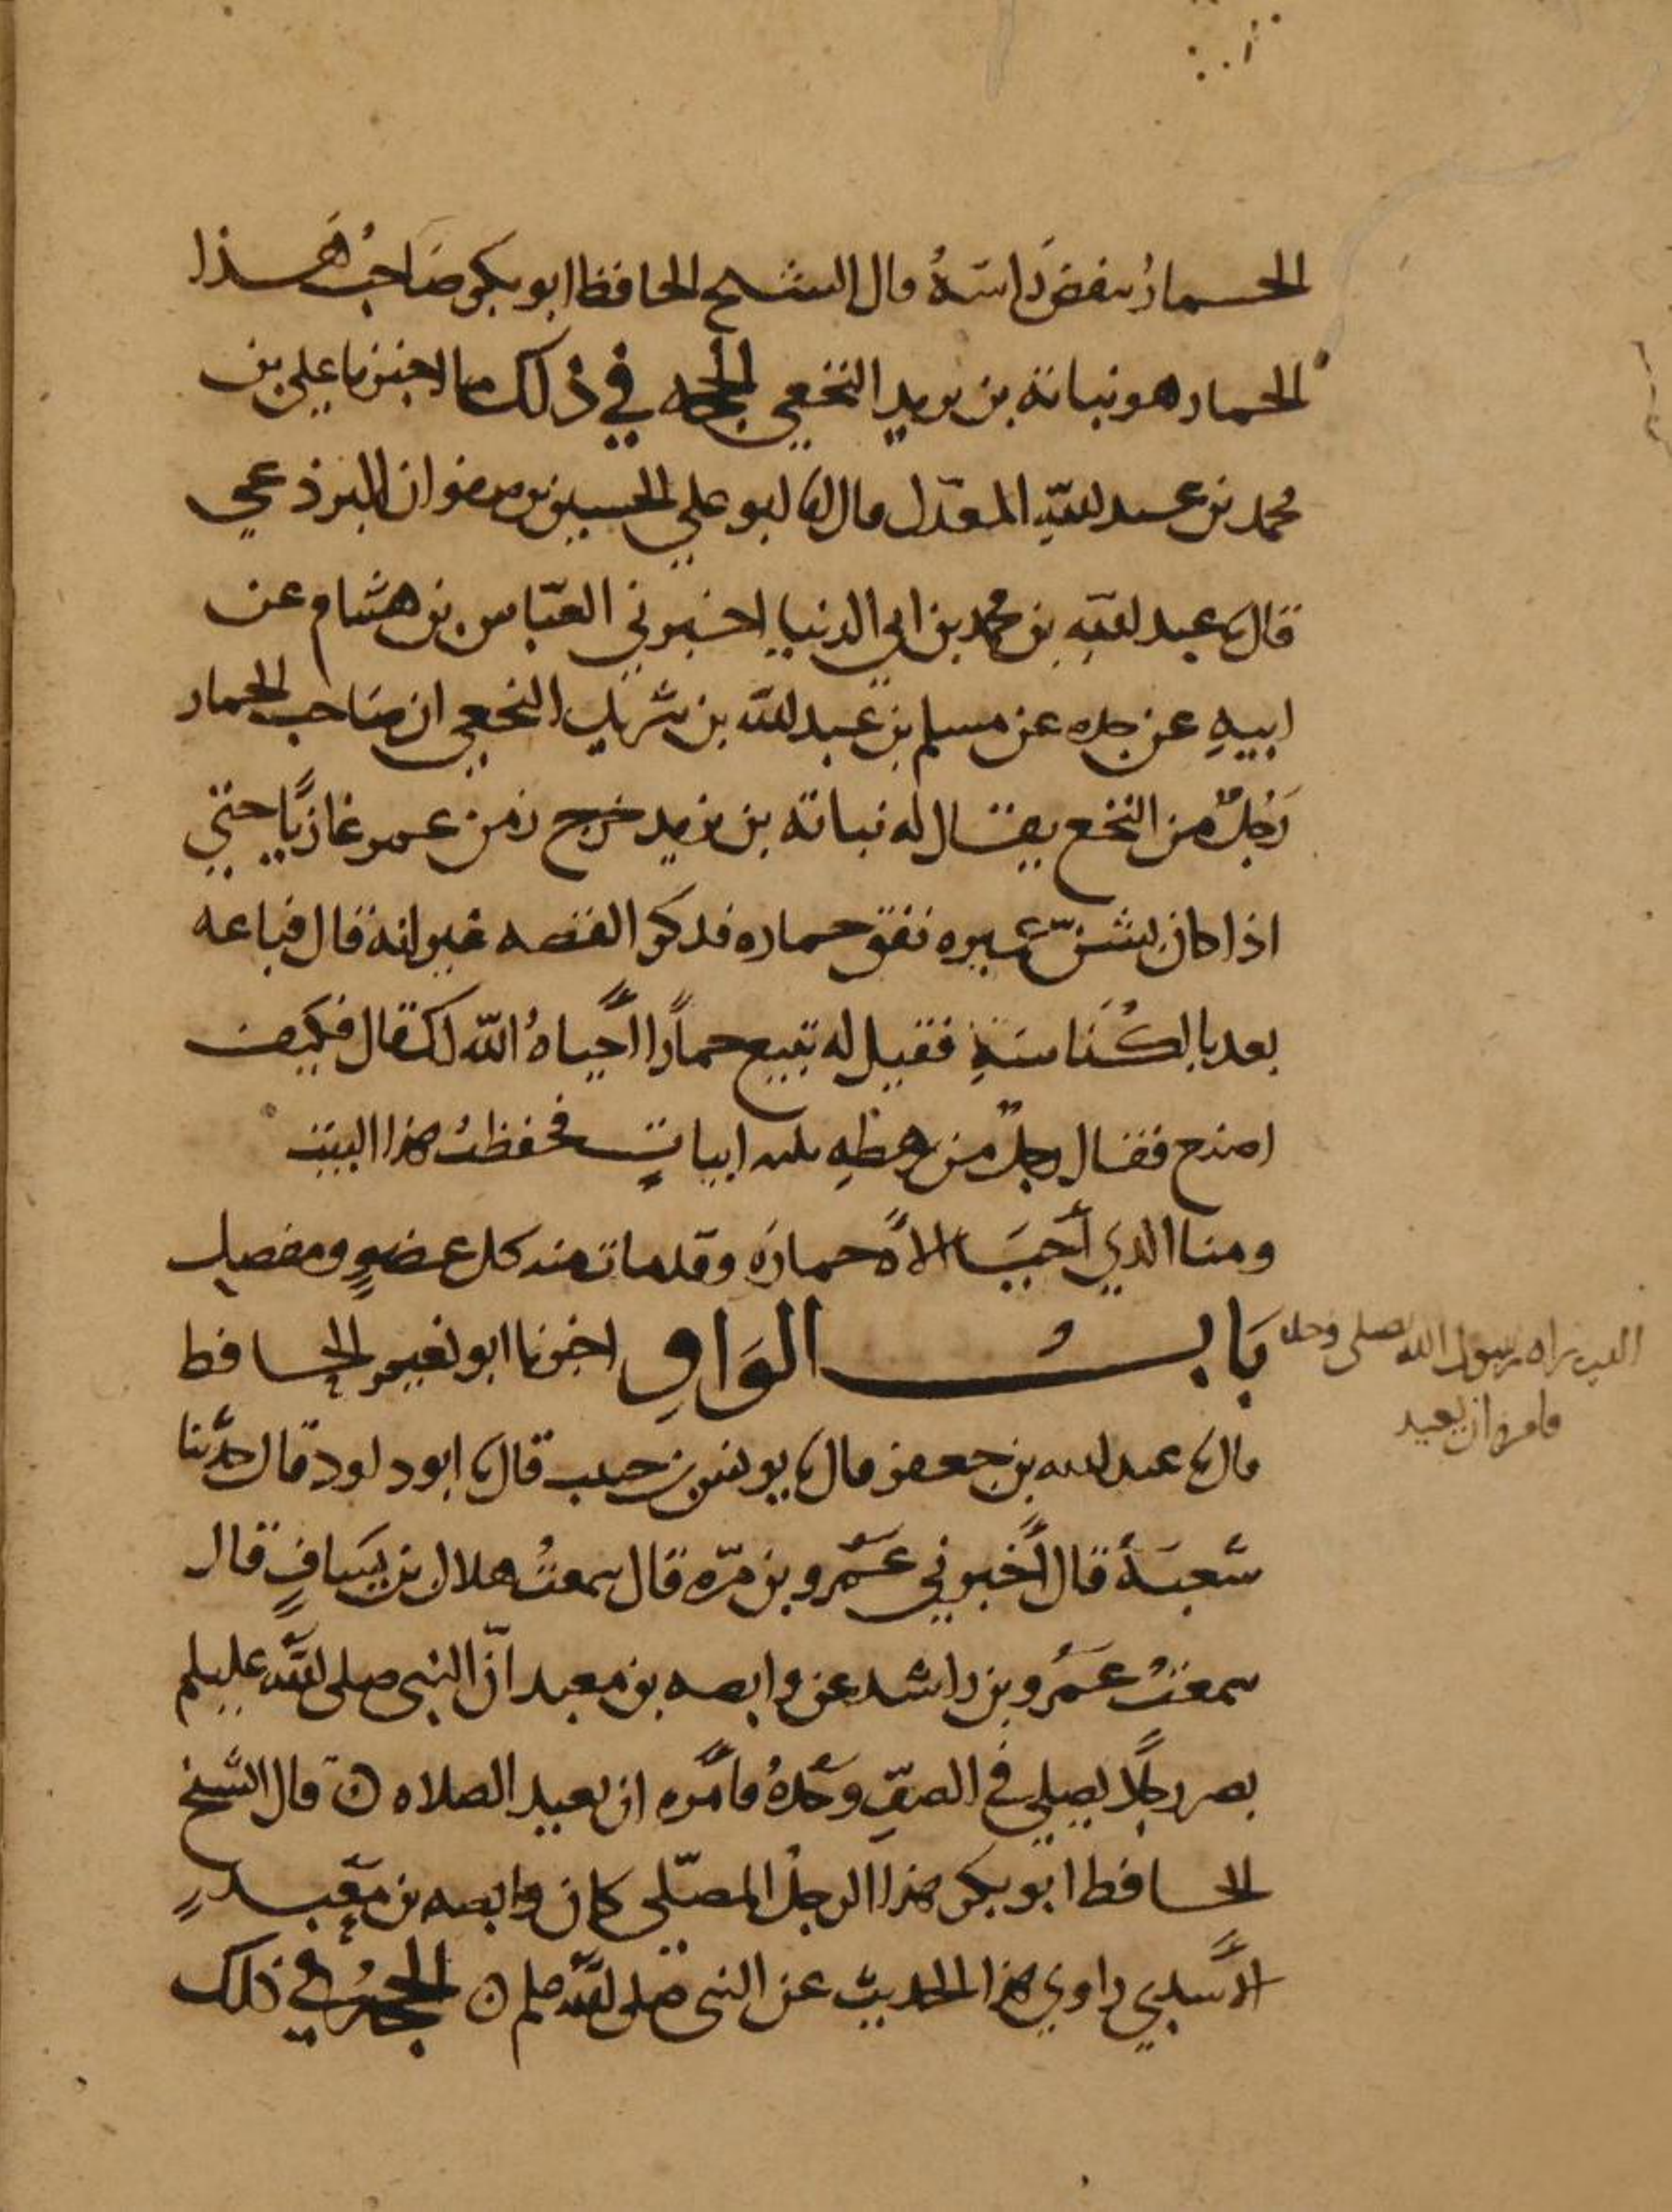 الحمار ينفض راسه قال الشيخ الحافظ ابو بكر صاحب هذا
الحمار هو نباتة بن يزيد النخعي الحجه في ذلك ما اخبرنا علي بن
محمد بن عبد الله المعدل قال انا ابو علي الحسين بن صفوان البرذعي
قال نا عبد الله بن محمد بن ابي الدنيا اخبرني العباس بن هشام عن
ابيه عن جده عن مسلم بن عبد الله بن شريك النخعي ان صاحب الحمار
رجل من النخع يقال له نباتة بن يزيد خرج زمن عمر غازيا حتى
اذا كان بشن عميره نفق حماره فذكر القصه غير انه قال فباعه
بعد بالكناسة فقيل له تبيع حمارا احياه الله لك قال فكيف
اصنع فقال رجل من رهطه ثلثه ابيات فحفظت هذا البيت
ومنا الذي احيا الاله حماره وقد مات منه كل عضو ومفصل
باب الواو اخبرنا ابو نعيم الحافظ
قال نا عبد الله بن جعفر قال نا يونس بن حبيب قال نا ابو داود قال حدثنا
شعبة قال اخبرني عمرو بن مره قال سمعت هلال بن يساف قال
سمعت عمرو بن راشد عن وابصه بن معبد ان النبي صلى الله عليلم
بصر رجلا يصلي في الصف وحده فامره ان يعيد الصلاه ن قال الشيخ
الحافظ ابو بكر هذا الرجل المصلي كان وابصه بن معبد
الاسدي راوي هذا الحديث عن النبي صلى الله صلم ن الحجة في ذلك
راه رسول الله يصلي وحده
فامره ان يعيد